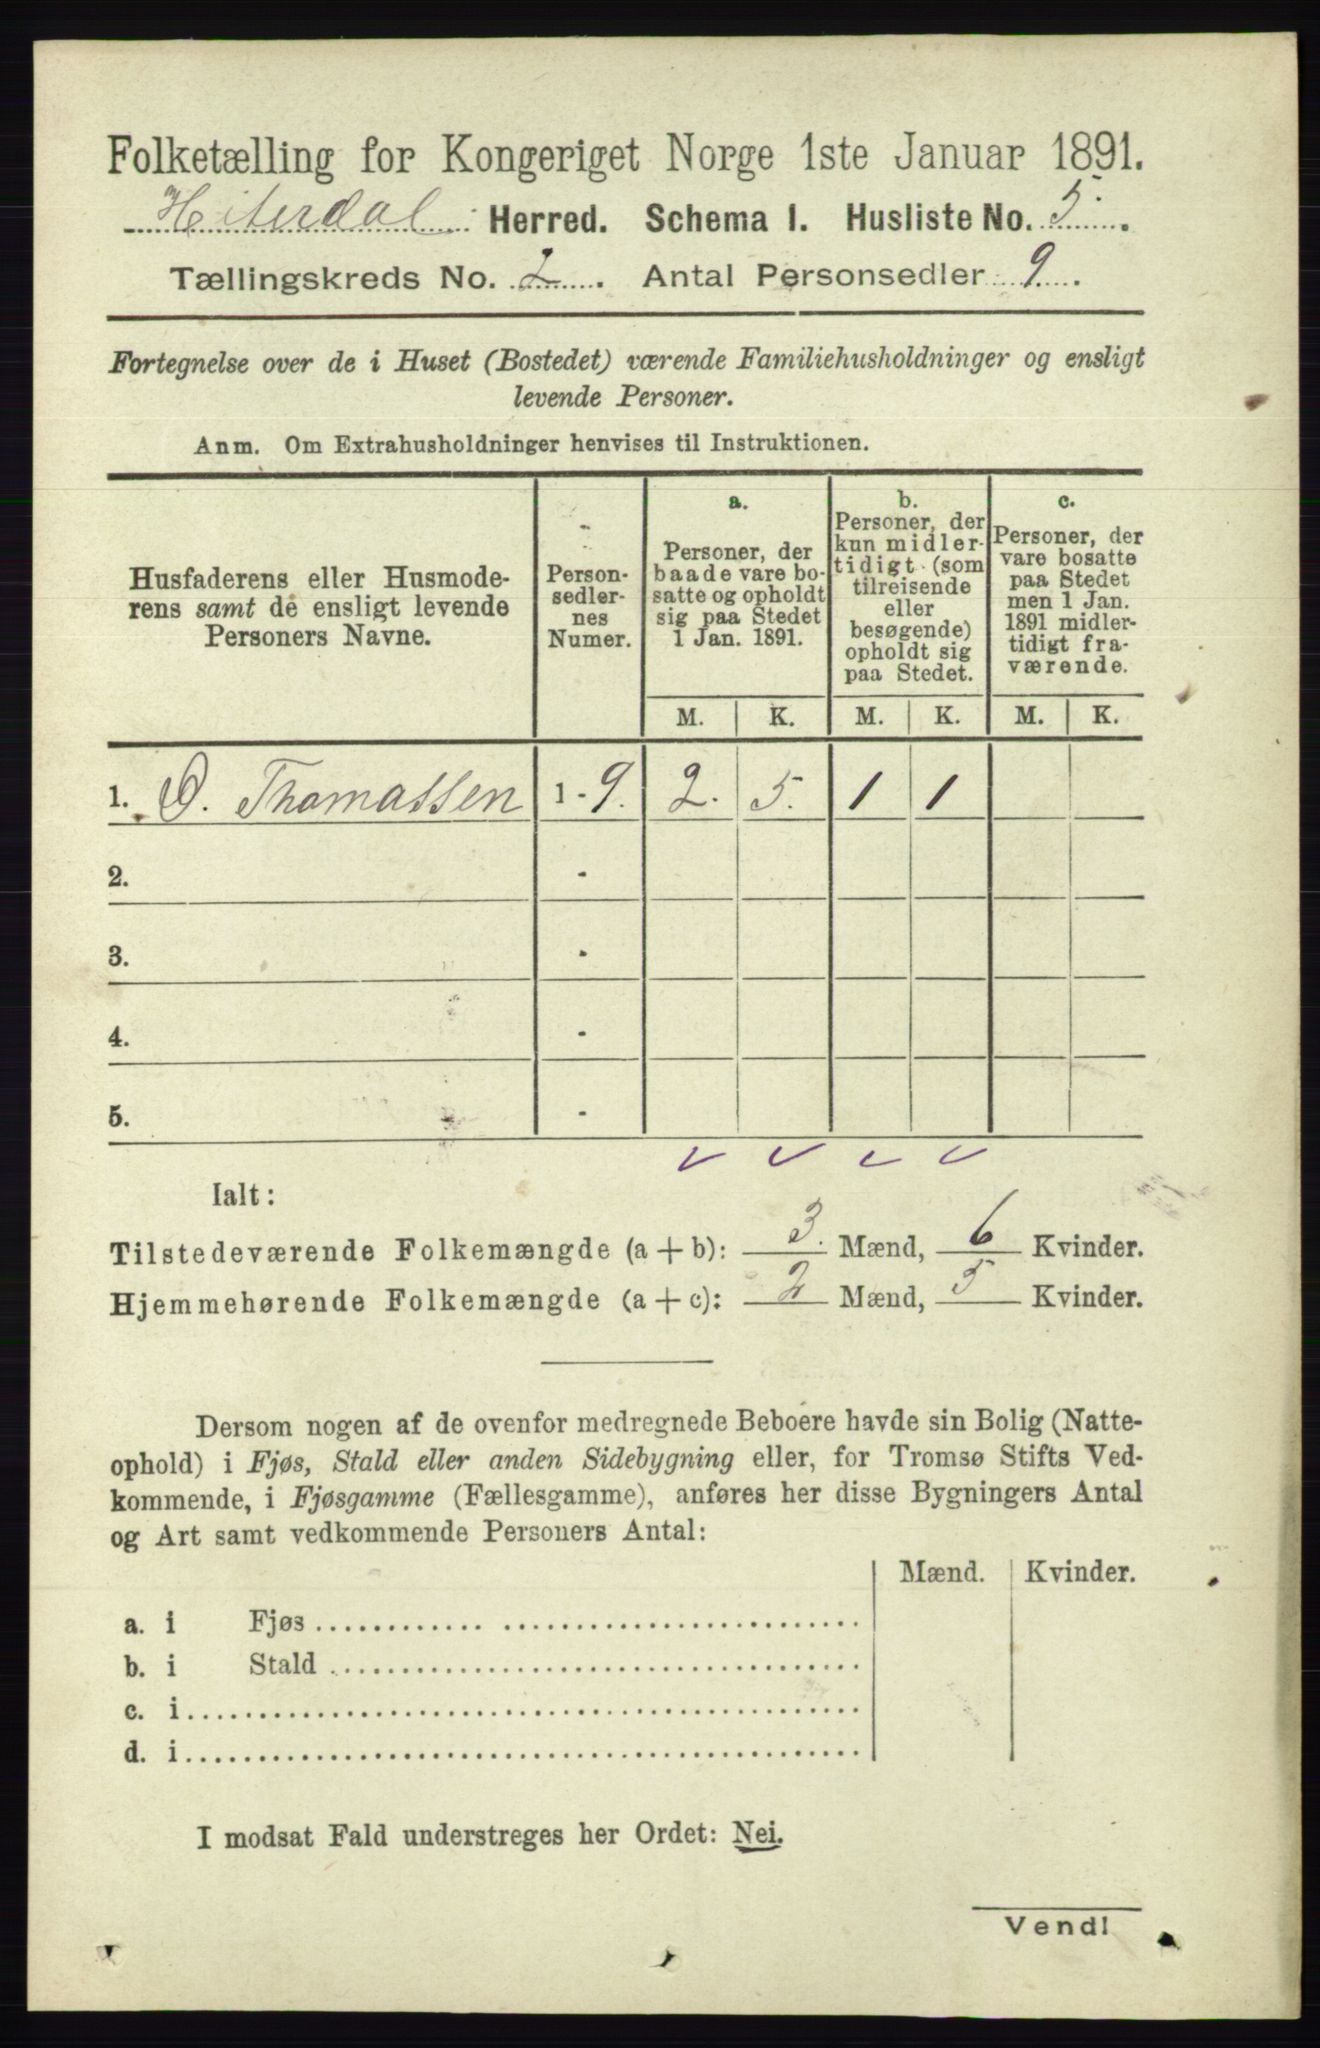 Folketælling for Kongeriget Norge 1ste Januar 1891.
Hiterdal Herred. Schema I. Husliste No. 5.
Tællingskreds No. 2. Antal Personsedler 9.
Fortegnelse over de i Huset (Bostedet) værende Familiehusholdninger og ensligt
levende Personer.
Anm. Om Extrahusholdninger henvises til Instruktionen.
Husfaderens eller Husmode-
rens samt de ensligt levende
Personers Navne.
Person-
sedler-
nes
Numer.
a.
Personer, der
baade vare bo-
satte og opholdt
sig paa Stedet
1 Jan. 1891.
b.
Personer, der
kun midler-
tidigt (som
tilreisende
eller
besøgende)
opholdt sig
paa Stedet.
c.
Personer, der
vare bosatte
paa Stedet
men 1 Jan.
1891 midler-
tidigt fra-
værende.
M. K. M. K. M. K.
1. O. Thomassen 1 - 9. 2. 5. 1 1
2. -
3. -
4. -
5. -
Ialt:
Tilstedeværende Folkemængde (a + b): 3. Mænd, 6 Kvinder.
Hjemmehørende Folkemængde (a + c): 2 Mænd, 5 Kvinder.
Dersom nogen af de ovenfor medregnede Beboere havde sin Bolig (Natte-
ophold) i Fjøs, Stald eller anden Sidebygning eller, for Tromsø Stifts Ved-
kommende, i Fjøsgamme (Fællesgamme), anføres her disse Bygningers Antal
og Art samt vedkommende Personers Antal:
Mænd. Kvinder.
a. i Fjøs
b. i Stald
c. i
d. i
I modsat Fald understreges her Ordet: Nei.
Vend!